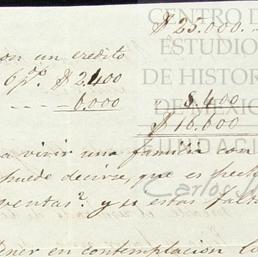 $ 25.000.
con un credito
6 p%. $ 2.400
6.000 8.400
$ 16.600
a vivir una familia con
puede decirse, que es
ventas? y si estas
tener en contemplacion
CENTRO DE
ESTUDIO
DE HISTOR
DE
FUNDACI
Carlos